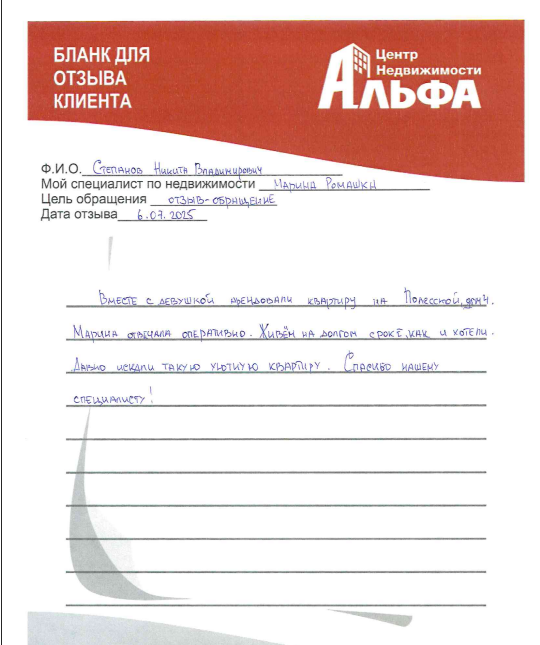 БЛАНК ДЛЯ
ОТЗЫВА
КЛИЕНТА
Центр
Недвижимости
АЛЬФА
Ф.И.О. Степанов Никита Владимирович
Мой специалист по недвижимости Марина Ромашки
Цель обращения отзыв-обращение
Дата отзыва 6.07.2025
Вместе с девушкой арендовали квартиру на Полесской, дом 4.
Марина отвечала оперативно. Живём на долгом сроке, как и хотели.
Давно искали такую уютную квартиру. Спасибо нашему
специалисту!